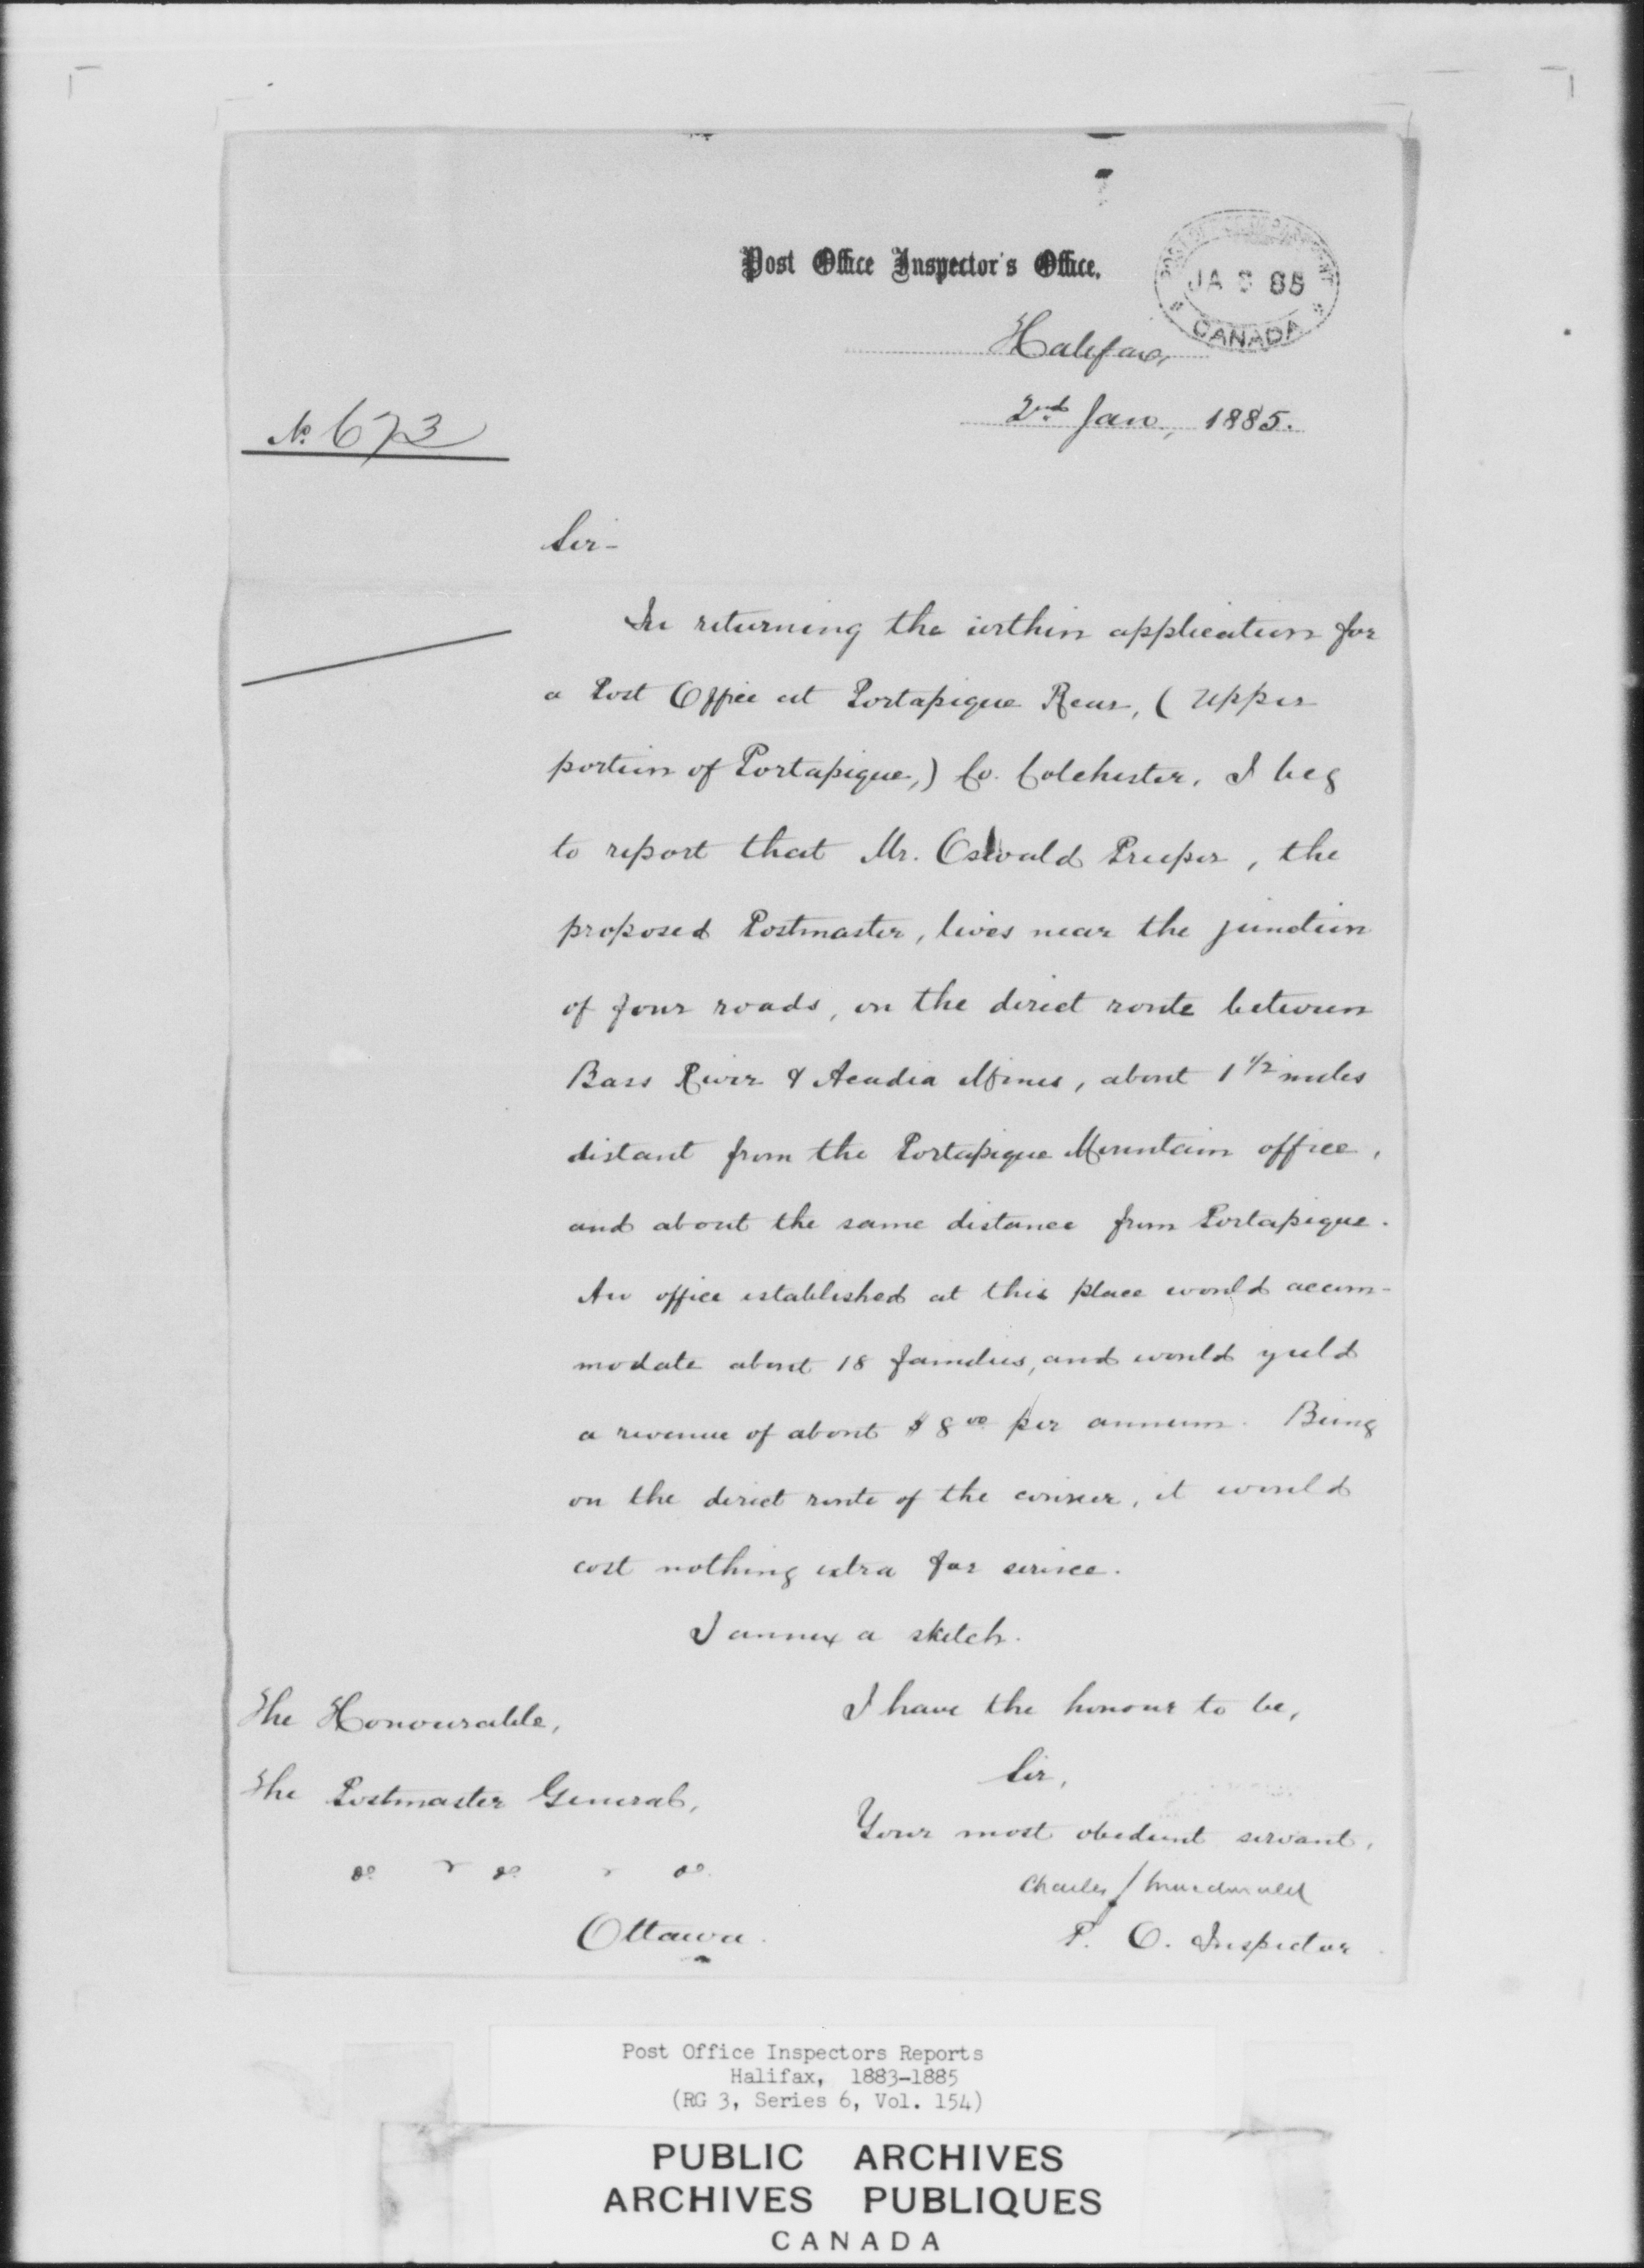 Post Office Inspector's Office.
POST OFFICE DEPARTMENT
JA 85
CANADA
Halifax,
2nd Jan, 1885.
No. 673
Sir-
In returning the within application for
a Post Office at Portapique Rear, (Upper
portion of Portapique,) Co. Colchester, I beg
to report that Mr. Oswald Preeper, the
proposed Postmaster, lives near the junction
of four roads, on the direct route between
Bass River & Acadia Mines, about 1 1/2 miles
distant from the Portapique Mountain office,
and about the same distance from Portapique.
An office established at this place would accom-
modate about 18 families, and would yield
a revenue of about $8 00 per annum. Being
on the direct route of the courier, it would
cost nothing extra for service.
I annex a sketch.
I have the honour to be,
Sir,
Your most obedient servant,
Charles J Macdonald
P. O. Inspector
The Honourable,
The Postmaster General,
&c. &c. &c.
Ottawa.
Post Office Inspectors Reports
Halifax, 1883-1885
(RG 3, Series 6, Vol. 154)
PUBLIC ARCHIVES
ARCHIVES PUBLIQUES
CANADA